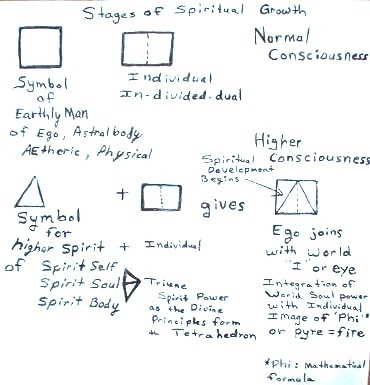 Stages of Spiritual Growth
Normal
Consciousness
Symbol
of
Earthly Man
of Ego, Astral body
AEtheric, Physical
Individual
In-divided-dual
Higher
Consciousness
Spiritual
Development
Begins
+
gives
Symbol
for
higher Spirit + Individual
of Spirit Self
Spirit Soul
Spirit Body
Triune
Spirit Power
as the Divine
Principles form
the Tetrahedron
Ego joins
with World
"I" or eye
Integration of
World Soul power
with Individual
Image of 'Phi'*
or pyre = fire
*Phi: Mathematical
formula